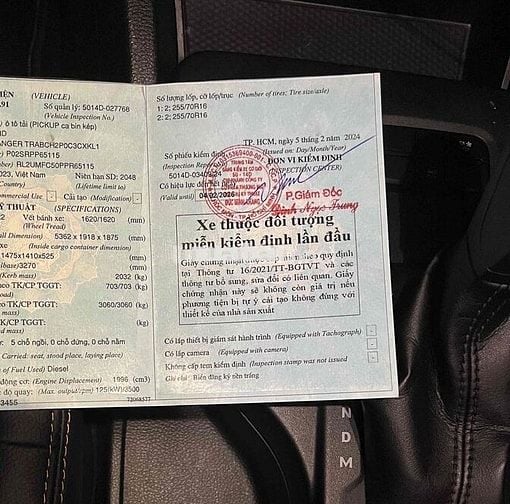 IỆN (VEHICLE)
.91 Số quản lý: 5014D-027768
(Vehicle Inspection No.)
ô tô tải (PICKUP ca bin kép)
RD
ANGER TRABCH2P0C3CXKL1
P02SRPP65115
RL2UMFC50PPR65115
023, Việt Nam Niên hạn SD: 2048
Country) (Lifetime limit to)
Commercial Use) Cải tạo (Modification)
Ỹ THUẬT (SPECIFICATIONS)
2 Vết bánh xe: 1620/1620 (mm)
(Wheel Tread)
5362 x 1918 x 1875 (mm)
all Dimension)
xe (Inside cargo container dimension)
1475x1410x525 (mm)
lbase) 3270 (mm)
2032 (kg)
(Kerb mass)
eo TK/CP TGGT: 703/703 (kg)
load)
eo TK/CP TGGT: 3060/3060 (kg)
d mass)
TK/CP TGGT: (kg)
mass)
o: 5 chỗ ngồi, 0 chỗ đứng, 0 chỗ nằm
Carried: seat, stood place, laying place)
of Fuel Used) Diesel
động cơ: (Engine Displacement) 1996 (cm3)
độ quay: (Max. output/rpm) 125(kW)/3500
73455 73068577
Số lượng lốp, cỡ lốp/trục (Number of tires; Tire size/axle)
1: 2; 255/70R16
2: 2; 255/70R16
TP. HCM, ngày 5 tháng 2 năm 2024
(Issued on: Day/Month/Year)
Số phiếu kiểm định ĐƠN VỊ KIỂM ĐỊNH
(Inspection Report (INSPECTION CENTER)
5014D-03409/24
Có hiệu lực đến hết ngày
(Valid until) 04/02/2026
P.Giám Đốc
Đinh Ngọc Trung
Xe thuộc đối tượng
miễn kiểm định lần đầu
Giấy chứng nhận được cấp miễn theo quy định
tại Thông tư 16/2021/TT-BGTVT và các
thông tư bổ sung, sửa đổi có liên quan. Giấy
chứng nhận này sẽ không còn giá trị nếu
phương tiện bị tự ý cải tạo không đúng với
thiết kế của nhà sản xuất
Có lắp thiết bị giám sát hành trình (Equipped with Tachograph)
Có lắp camera (Equipped with camera)
Không cấp tem kiểm định (Inspection stamp was not issued)
Ghi chú: Biển đăng ký nền trắng
N
D
M